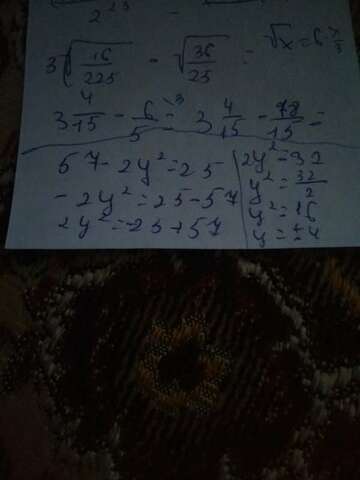 2 25
3√16/225 - √36/25 =
√x = 6
3 4/15 - 6/5 = 3 4/15 - 18/15 =
57 - 2y² = 25
- 2y² = 25 - 57
2y² = -25 + 57
2y² = 32
y² = 32/2
y² = 16
y = ±4